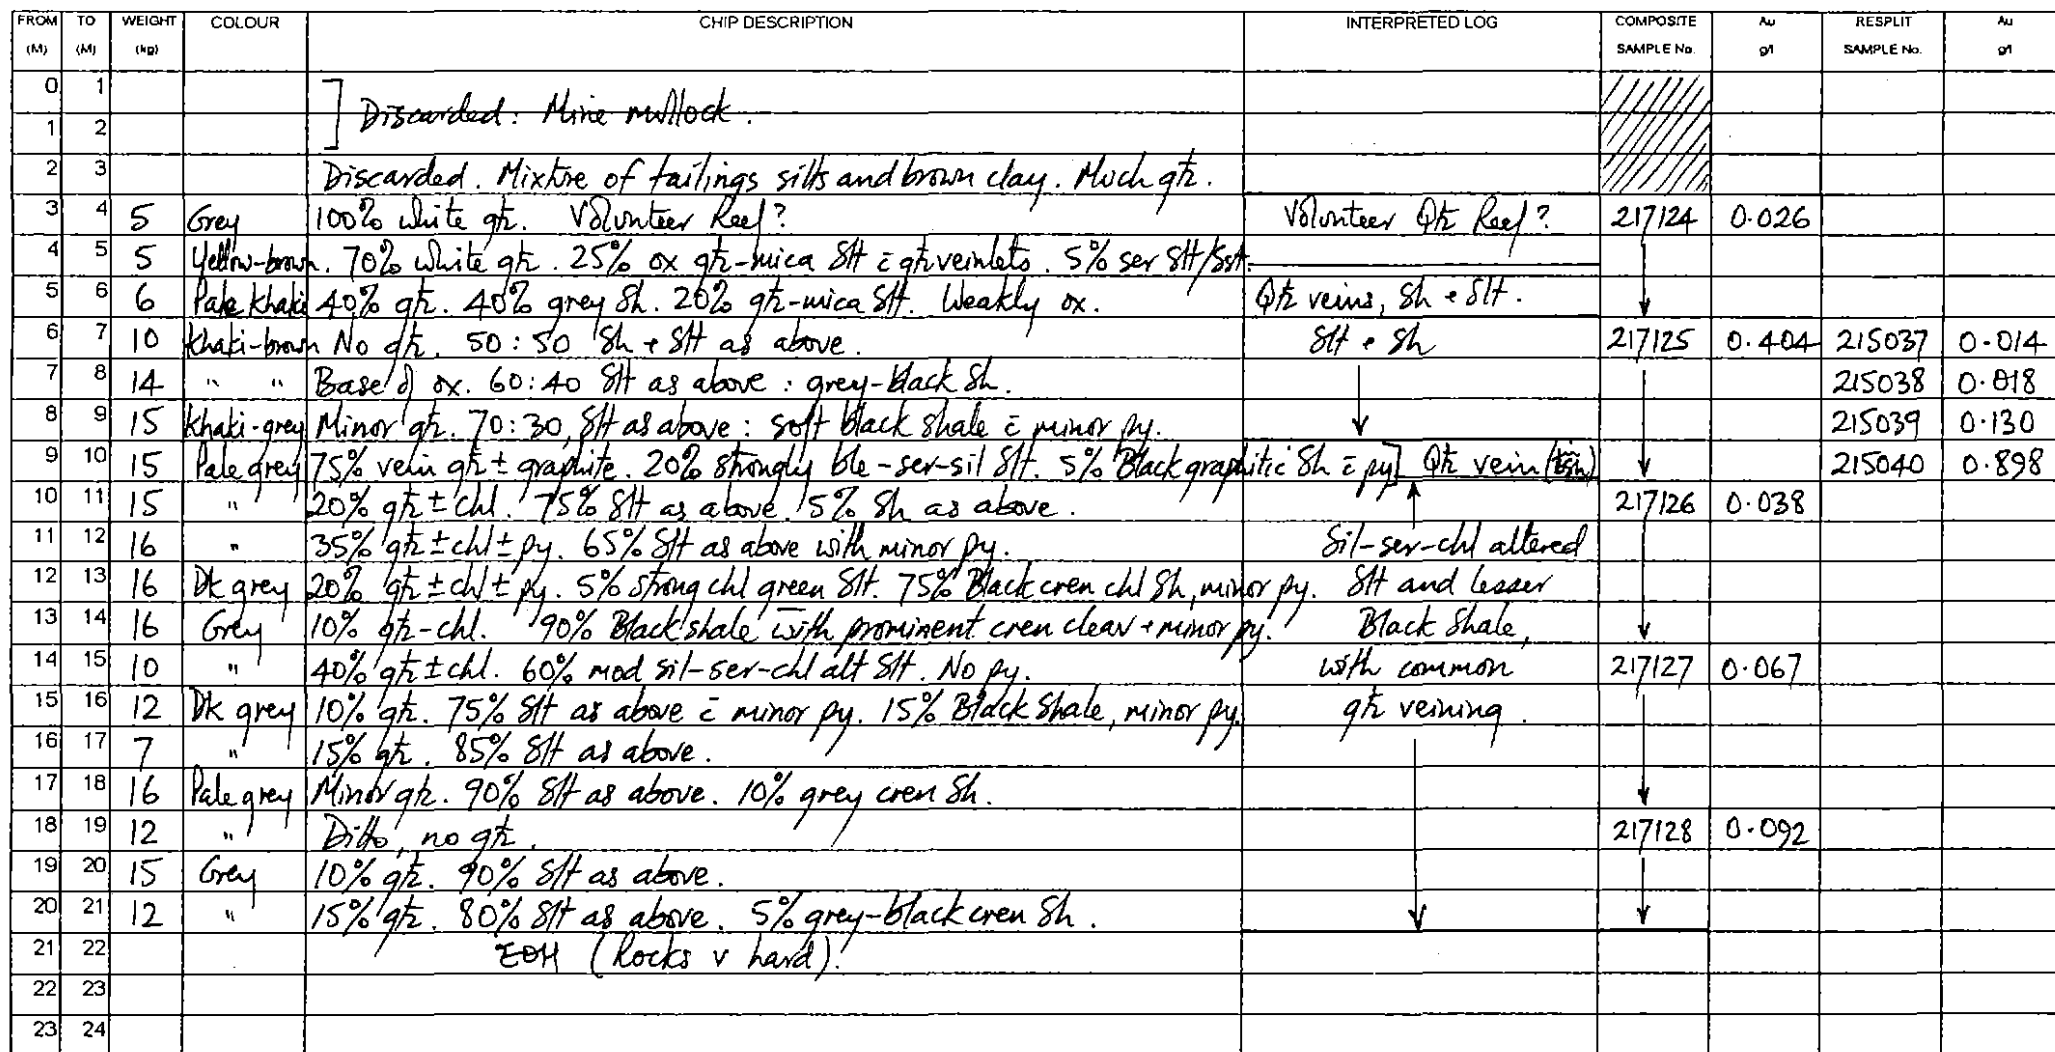 FROM (M) TO (M) WEIGHT (kg) COLOUR CHIP DESCRIPTION INTERPRETED LOG COMPOSITE SAMPLE No. Au g/t RESPLIT SAMPLE No. Au g/t
0 1
] Discarded: Mine mullock.
1 2
2 3 Discarded. Mixture of tailings silts and brown clay. Much qtz.
3 4 5 Grey 100% white qtz. Volunteer Reef? Volunteer Qtz Reef? 217124 0.026
4 5 5 Yellow-brown. 70% white qtz. 25% ox qtz-mica Slt c̄ qtz veinlets. 5% ser Slt/Sst.
5 6 6 Pale khaki 40% qtz. 40% grey Sh. 20% qtz-mica Slt. Weakly ox. Qtz veins, Sh + Slt.
6 7 10 Khaki-brown No qtz. 50:50 Sh + Slt as above. Slt + Sh 217125 0.404 215037 0.014
7 8 14 " " Base of ox. 60:40 Slt as above : grey-black Sh. 215038 0.018
8 9 15 Khaki-grey Minor qtz. 70:30, Slt as above : soft black shale c̄ minor py. 215039 0.130
9 10 15 Pale grey 75% vein qtz ± graphite. 20% strongly ble-ser-sil Slt. 5% Black graphitic Sh c̄ py] Qtz vein 215040 0.898
10 11 15 " 20% qtz ± chl. 75% Slt as above. 5% Sh as above. 217126 0.038
11 12 16 " 35% qtz ± chl ± py. 65% Slt as above with minor py. Sil-ser-chl altered
12 13 16 Dk grey 20% qtz ± chl ± py. 5% strong chl green Slt. 75% Black cren chl Sh, minor py. Slt and lesser
13 14 16 Grey 10% qtz-chl. 90% Black shale with prominent cren cleav + minor py. Black Shale,
14 15 10 " 40% qtz ± chl. 60% mod sil-ser-chl alt Slt. No py. with common 217127 0.067
15 16 12 Dk grey 10% qtz. 75% Slt as above c̄ minor py. 15% Black Shale, minor py. qtz veining.
16 17 7 " 15% qtz. 85% Slt as above.
17 18 16 Pale grey Minor qtz. 90% Slt as above. 10% grey cren Sh.
18 19 12 " Ditto, no qtz. 217128 0.092
19 20 15 Grey 10% qtz. 90% Slt as above.
20 21 12 " 15% qtz. 80% Slt as above. 5% grey-black cren Sh.
21 22 EOH (Rocks v hard).
22 23
23 24